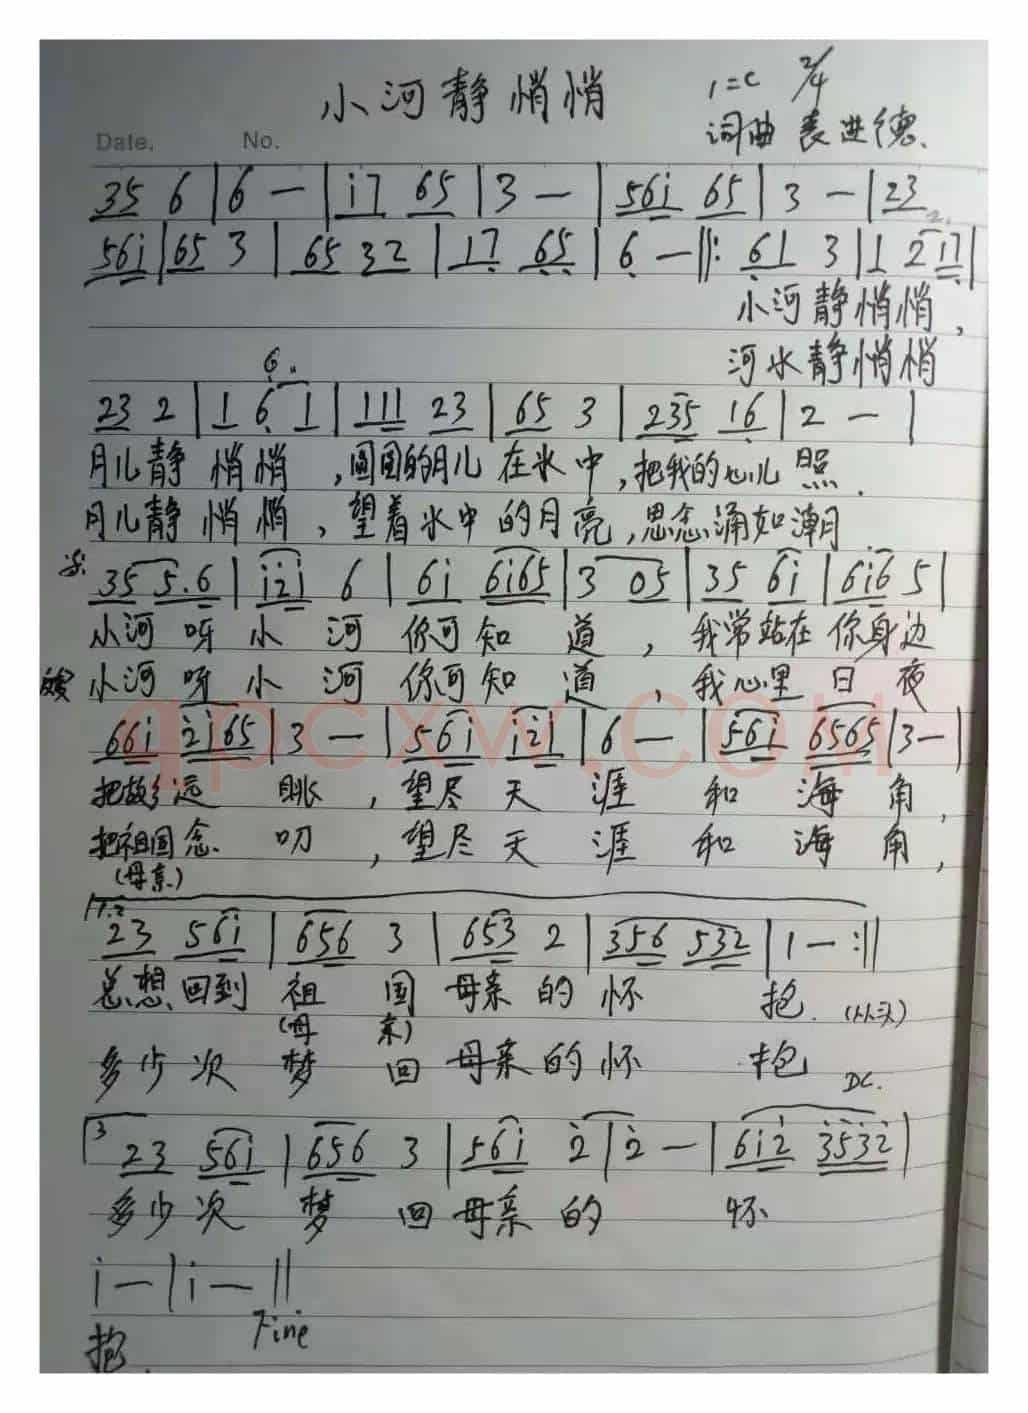 小河静悄悄
1=C 2/4
词曲 袁进德.
Date. No.
35 6 | 6 — | i7 65 | 3 — | 56i 65 | 3 — | 23
56i | 65 3 | 65 32 | 17 65 | 6 — ‖: 61 3 | 1 2 17 |
小河静悄悄,
河水静悄悄
6.
23 2 | 1 6 1 | 111 23 | 65 3 | 235 16 | 2 — |
月儿静悄悄,圆圆的月儿在水中,把我的心儿照.
月儿静悄悄,望着水中的月亮,思念涌如潮
35 5.6 | i2i 6 | 6i 6i65 | 3 05 | 35 6i | 6i6 5 |
小河呀小河你可知道,我常站在你身边
小河呀小河你可知道,我心里日夜
qpcxw.com
66i 2i65 | 3 — | 56i i2i | 6 — | 56i 6565 | 3 — |
把故乡远眺,望尽天涯和海角,
把祖国念叨,望尽天涯和海角,
(母亲)
1.2
23 56i | 656 3 | 653 2 | 356 532 | 1 — :‖
总想回到祖国母亲的怀抱. (从头)
(母亲)
多少次梦回母亲的怀抱 DC.
3
23 56i | 656 3 | 56i 2 | 2 — | 6i2 3532 |
多少次梦回母亲的怀
i — | i — ‖
抱. Fine